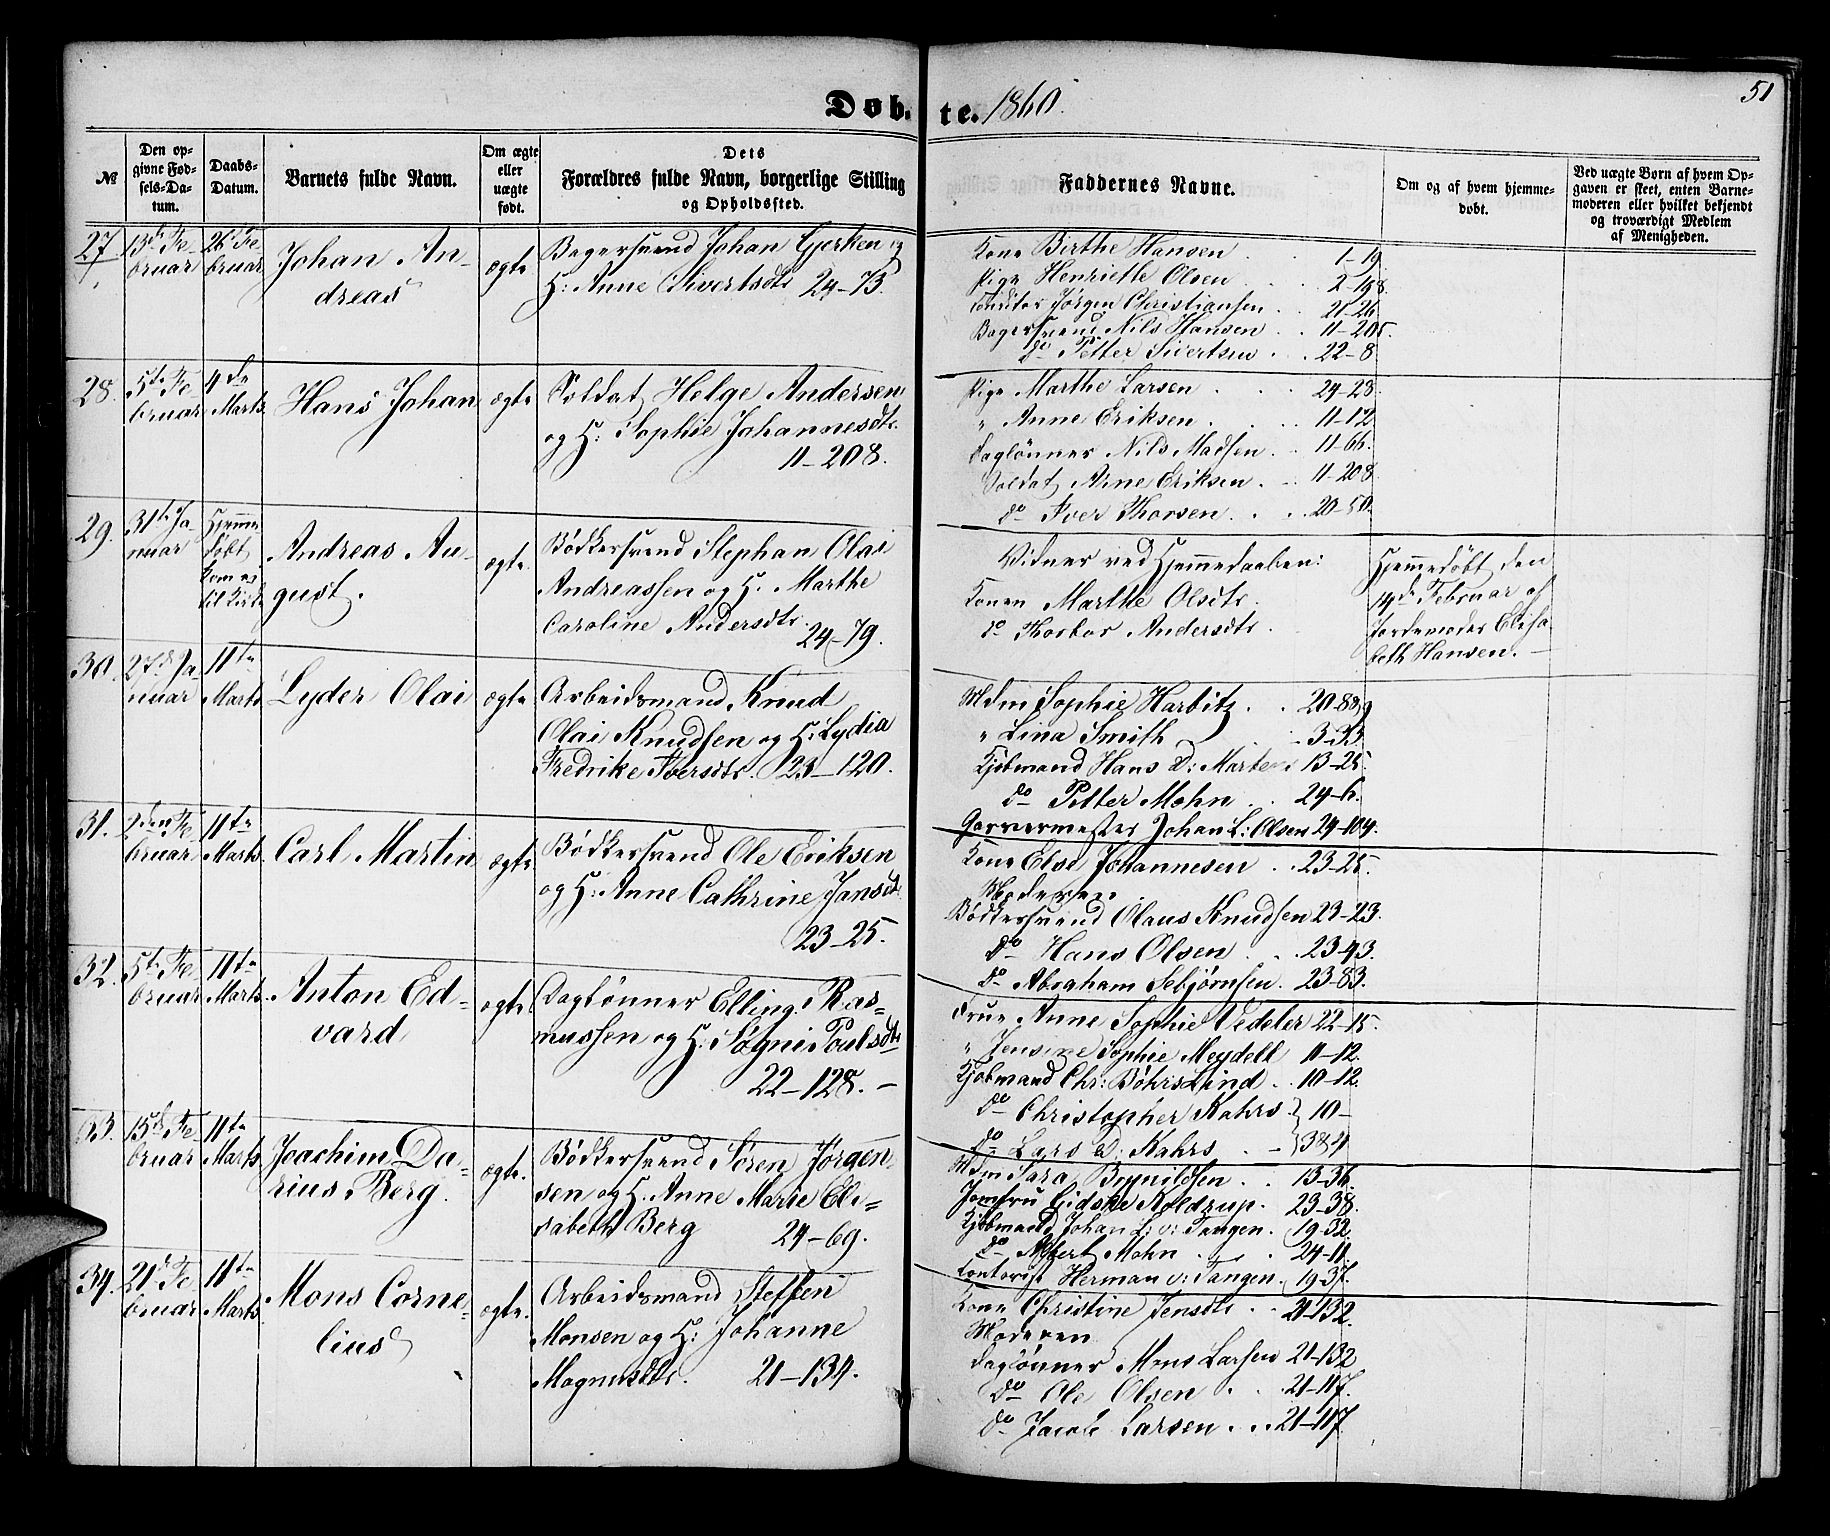 Døb-te. 1860.
51
№
Den op-
givne Fød-
sels-Da-
tum.
Daabs-
Datum.
Barnets fulde Navn.
Om ægte
eller
uægte
født.
Dets
Forældres fulde Navn, borgerlige Stilling
og Opholdssted.
Faddernes Navne.
Om og af hvem hjemme-
døbt.
Ved uægte Børn af hvem Op-
gaven er skeet, enten Barne-
moderen eller hvilket bekjendt
og troværdigt Medlem
af Menigheden.
27
13de Fe-
bruar
26de Fe-
bruar
Johan An-
dreas
ægte
Bagersvend Johan Gerken og
H: Anne Sivertsdtr 24-73.
Kone Birthe Hansen 1-19
Pige Henriette Olsen 2-198.
Conditor Jørgen Christiansen 21-26
Bagersvend Nils Hansen 11-205.
do Petter Sivertsen 22-8
28.
5te Fe-
bruar
4de
Marts
Hans Johan
ægte
Soldat Helge Andersen
og H: Sophie Johannesdtr
11-208.
Pige Marthe Larsen 24-23
" Anne Eriksen 11-12
Daglønner Nils Madsen 11-66.
Soldat Arne Eriksen 11-208
do Iver Thorsen 20-50.
29.
31te Ja-
nuar
Hjemme
døbt
Kom ei
til Kirke
Andreas Au-
gust.
ægte
Bødkersvend Stephan Olai
Andreassen og H. Marthe
Caroline Andersdtr.
24-79.
Vidner ved Hjemmedaaben:
Konen Marthe Olsdtr.
do Thorbor Andersdtr.
Hjemmedøbt den
14de Februar af
Jordemoder Elisa-
beth Hansen.
30.
27de Ja-
nuar
11te
Marts
Lyder Olai
ægte
Arbeidsmand Knud
Olai Knudsen og H: Lydia
Fredrike Iversdtr. 23-120.
Mdm Sophie Harbitz 20-88
" Lina Smith 3-33
Kjøbmand Hans D: Martens 13-25
do Petter Mohn 24-6.
Garvermester Johan L: Olsen 24-104.
31.
2den Fe-
bruar
11te
Marts
Carl Martin
ægte
Bødkersvend Ole Eriksen
og H: Anne Cathrine Jansdtr
23-25.
Kone Else Johannesen 23-25.
Moderen
Bødkersvend Olaus Knudsen 23-23.
do Hans Olsen 23-43.
do Abraham Sebjørnsen 23-83.
32.
5te Fe-
bruar
11te
Marts
Anton Ed-
vard
ægte
Daglønner Elling Ras-
mussen og H: Søgni Poulsdtr
22-128.
Frue Anne Sophie Vedeler 22-15.
" Jensine Sophie Meydell 11-12.
Kjøbmand Chr: Bøhrs Lind 10-12.
do Christopher Kahrs } 10-
do Lars D: Kahrs } 384
33.
15de Fe-
bruar
11te
Marts
Joachim Da-
rius Berg.
ægte.
Bødkersvend Søren Jørgen-
sen og H. Anne Marie Eli-
sabeth Berg
24-69.
Mdm Sara Brynildsen 13-36
Jomfru Gidske Koldrup 23-38.
Kjøbmand Johan L: v: Tangen 19-32
do Albert Mohn 24-11
Contorist Herman v: Tangen 19-37.
34.
21de Fe-
bruar
11te
Marts
Mons Corne-
lius
ægte.
Arbeidsmand Steffen
Monsen og H: Johanne
Magnusdtr. 21-134.
Kone Christine Jensdtr 21-132.
Moderen
Daglønner Mons Larsen 21-132
do Ole Olsen 21-117.
do Jacob Larsen 21-117.